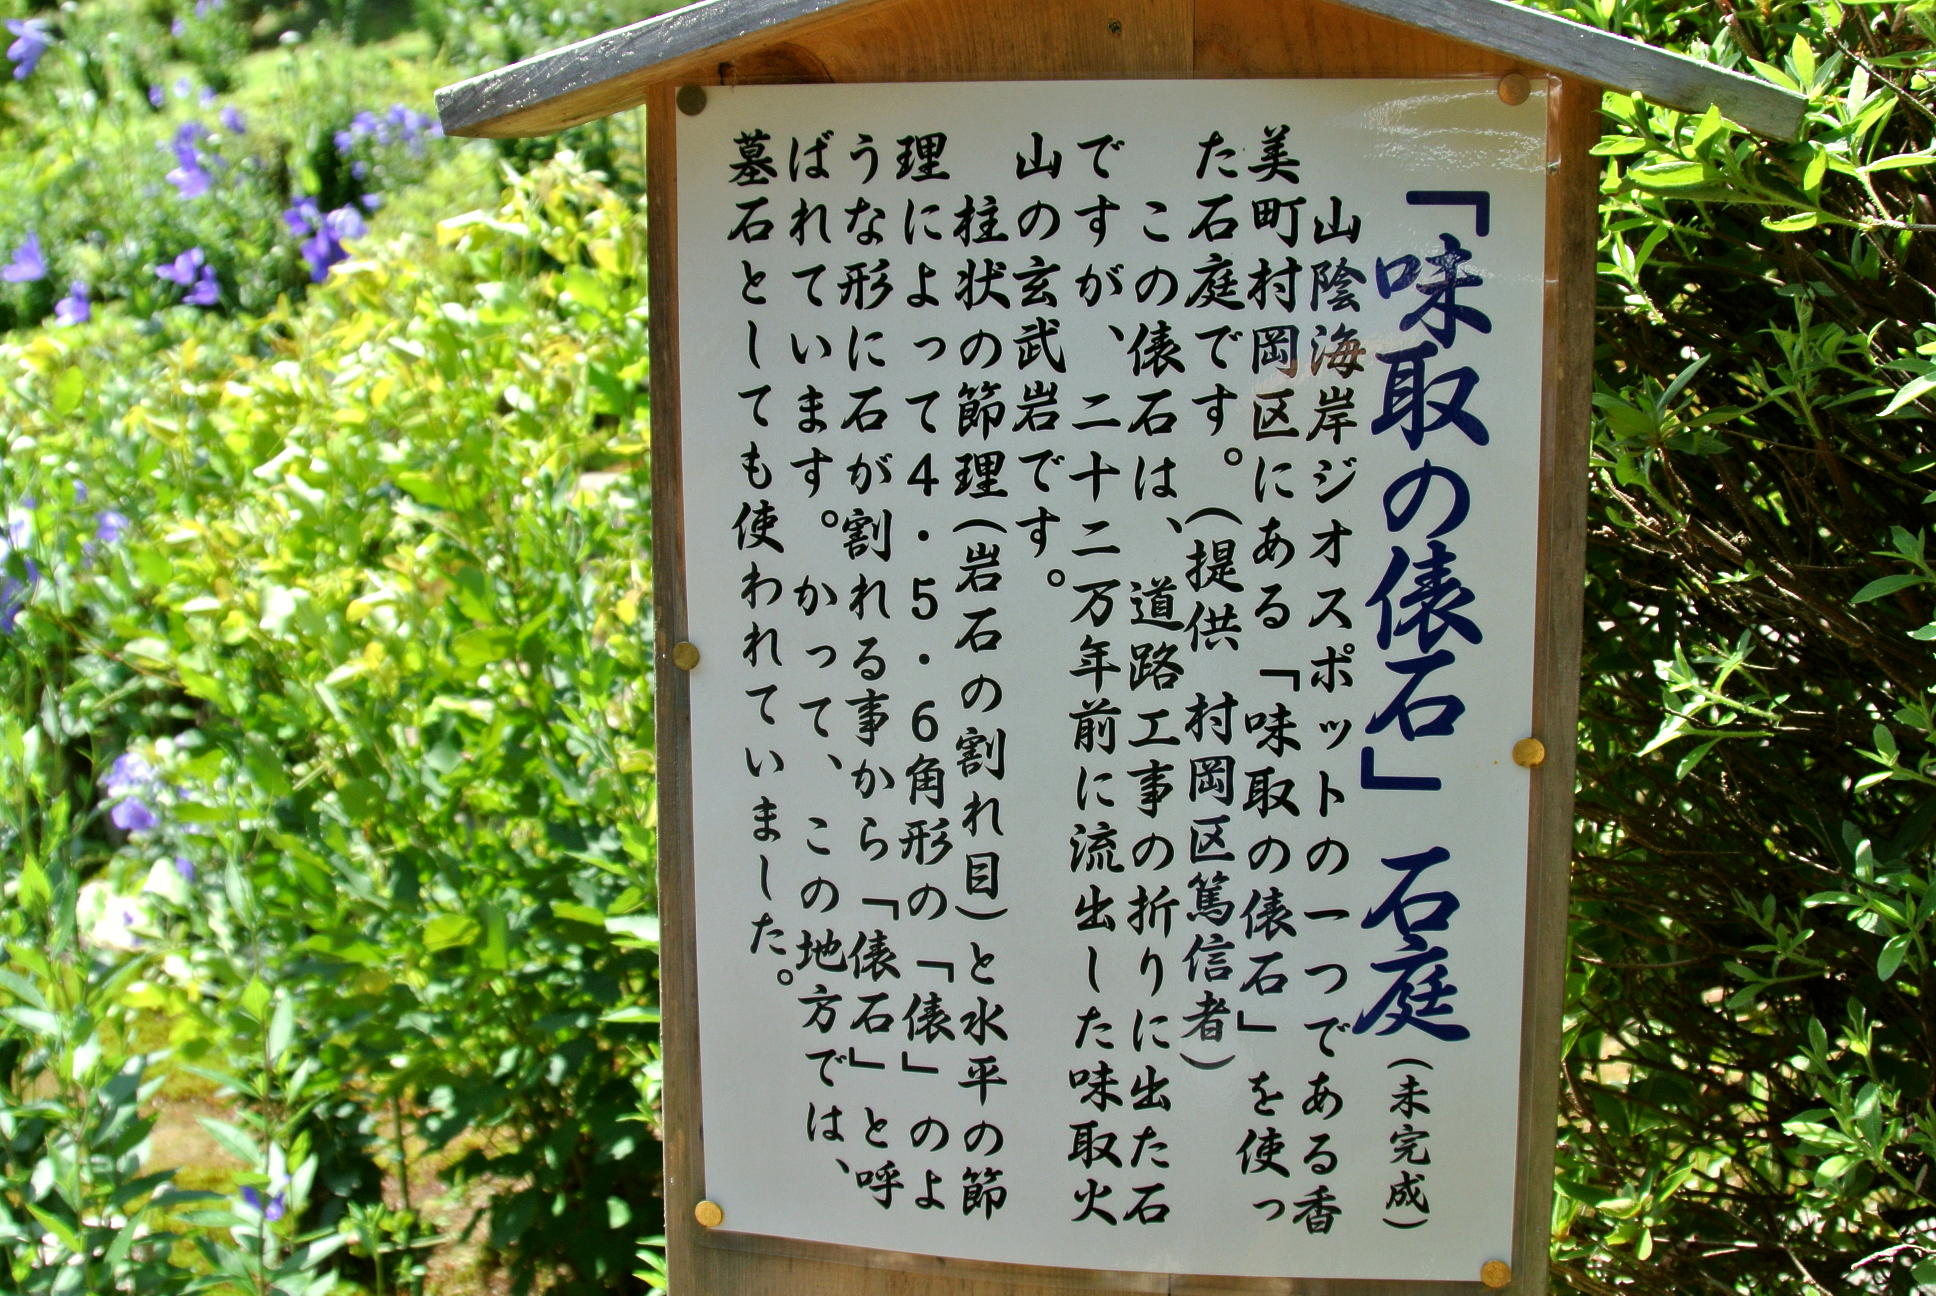 「味取の俵石」 石庭(未完成)
山陰海岸ジオスポットの一つである香
美町村岡区にある「味取の俵石」を使っ
た石庭です。(提供 村岡区篤信者)
この俵石は、道路工事の折りに出た石
ですが、二十二万年前に流出した味取火
山の玄武岩です。
柱状の節理(岩石の割れ目)と水平の節
理によって4・5・6角形の「俵」のよ
うな形に石が割れる事から「俵石」と呼
ばれています。かって、この地方では、
墓石としても使われていました。